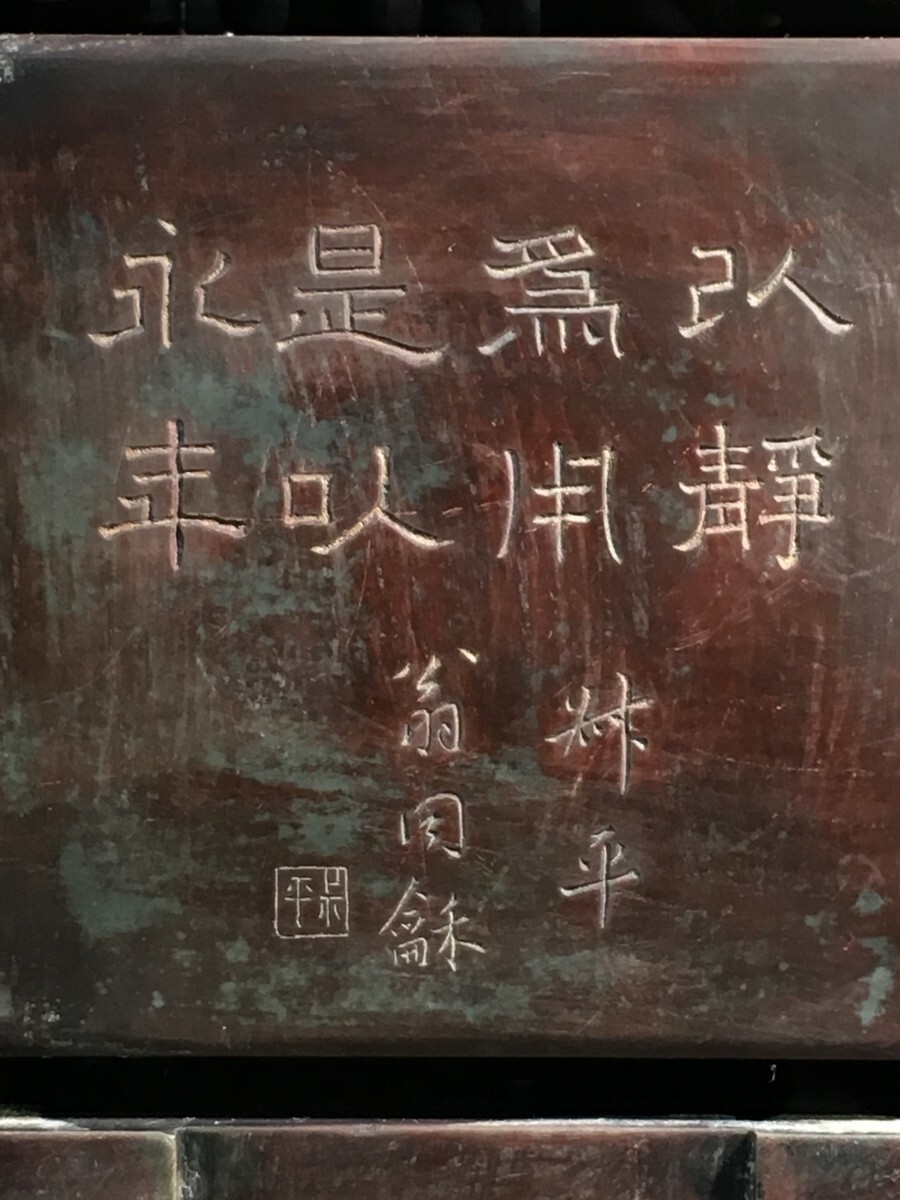 以靜
爲用
是以
永年
叔平
翁同龢
叔平